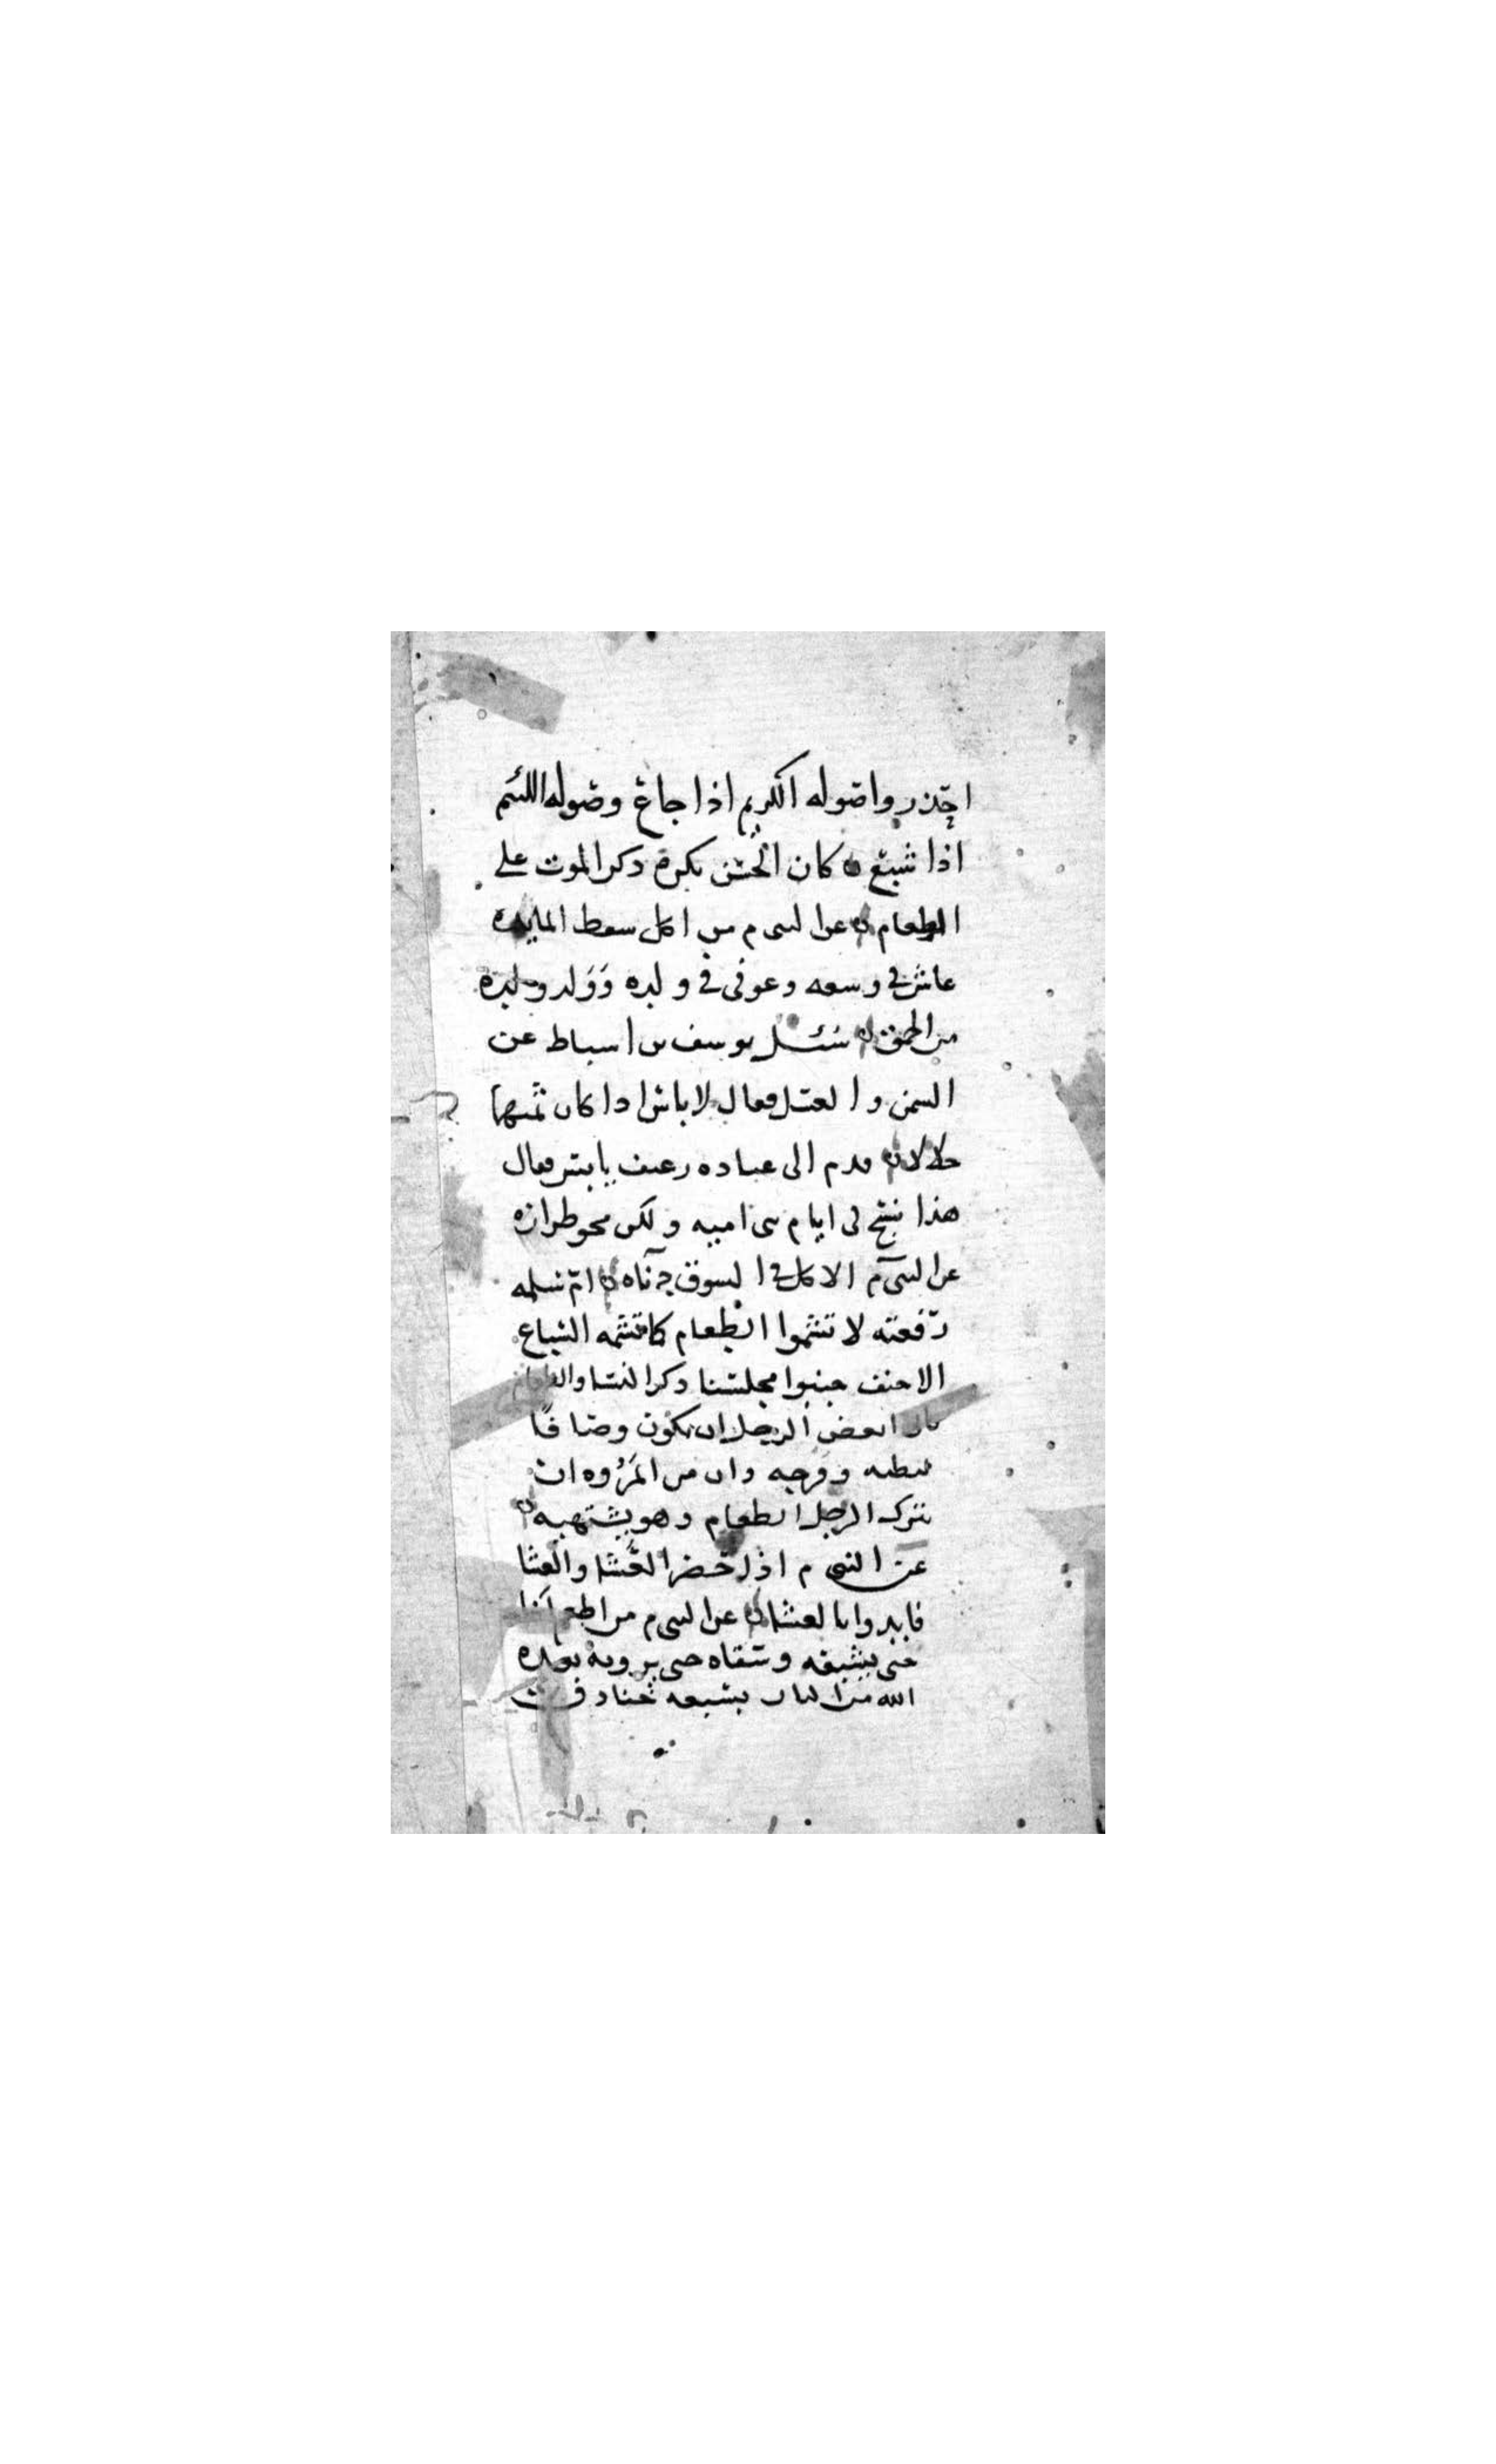 احذروا صوله الكريم اذا جاع وصوله اللئيم
اذا شبع كان الحسن يكره ذكر الموت على
الطعام عن النبي م من اكل سقط المايده
عاش في وسعه وعوفي في ولده وولد ولده
من الحمق سئل يوسف بن اسباط عن
السمن والعسل فقال لا باس اذا كان ثمنهما
حلالا قدم الى عباده رغيف يابس فقال
هذا نسج في ايام بني اميه ولكن محو طرازه
عن النبي م الاكل في السوق دناه ام سلمه
رفعته لا تشموا الطعام كما تشمه السباع
الاحنف جنبوا مجلسنا ذكر النسا والطعام
ابغض الرجل ان يكون وصافا
لبطنه وفرجه وان من المروه ان
يترك الرجل الطعام وهو يشتهيه
عن النبي م اذا حضر العشا والعشا
فابدوا بالعشا عن النبي م من اطعم اخاه
حتى يشبعه وسقاه حتى يرويه بعده
الله من النار بسبعه خنادق